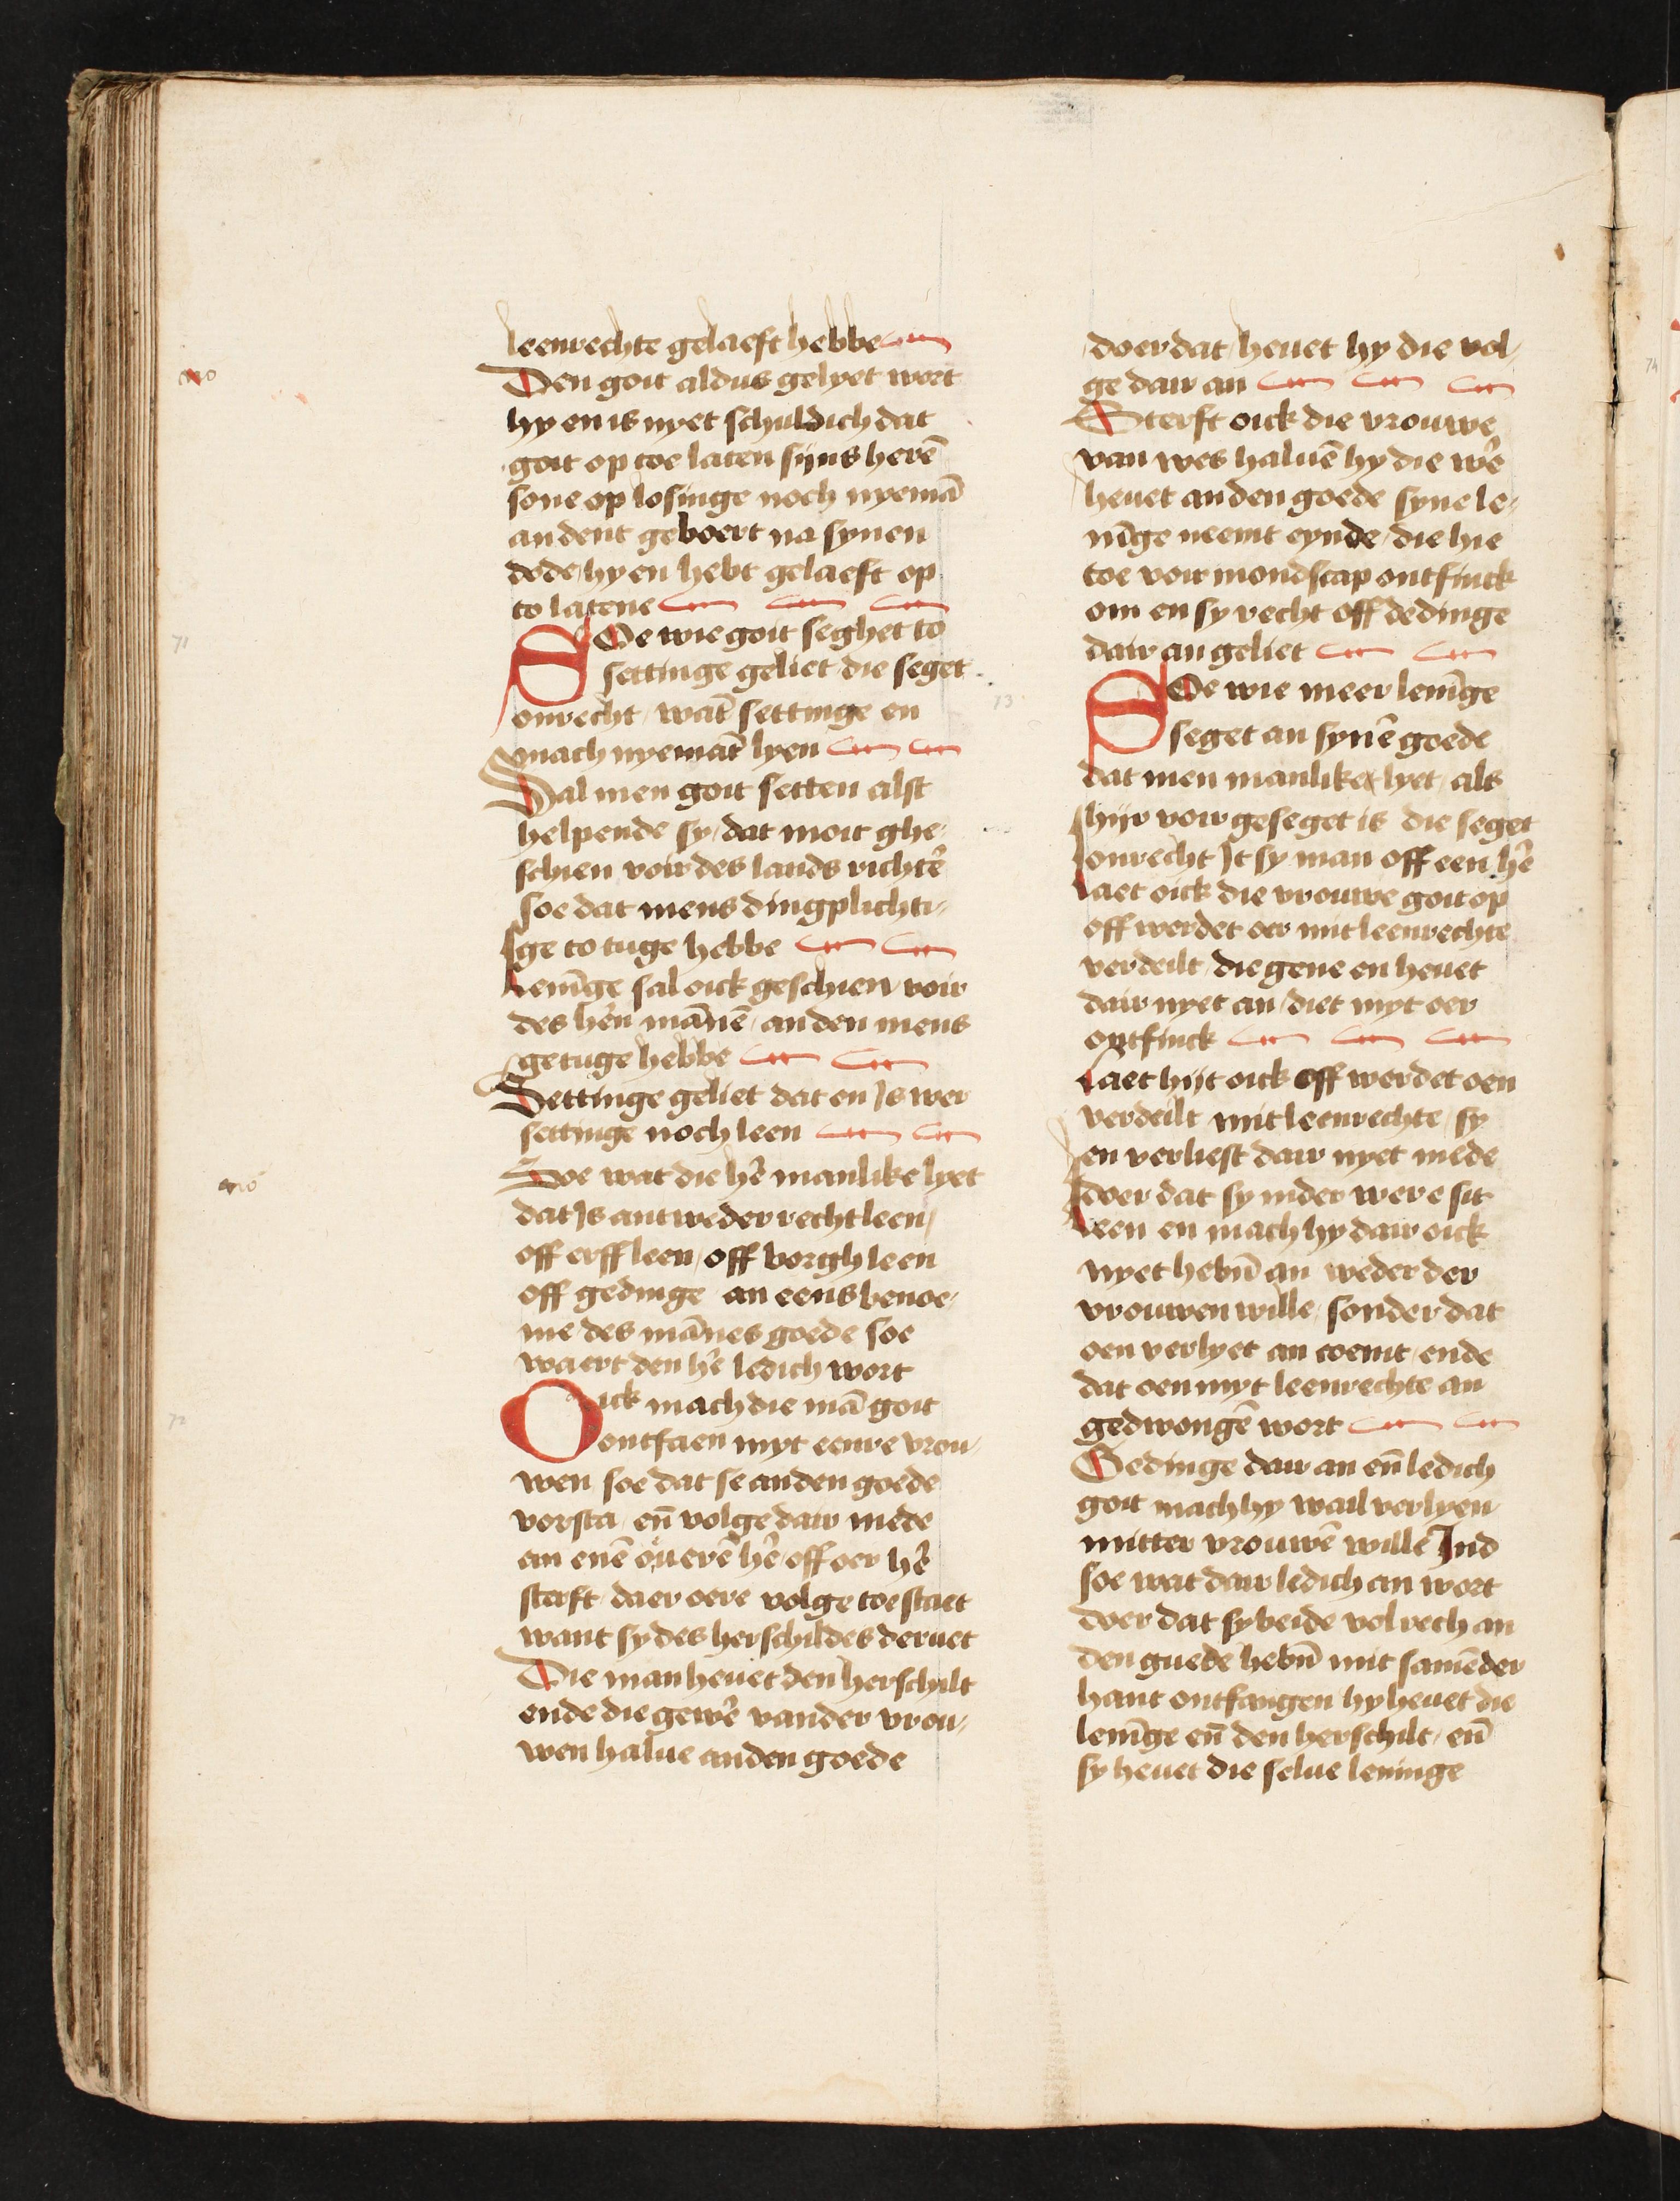 leenrechte gelaeft hebbe
Den goit aldus gelyet wort
hy en is nyet schuldich dat
goit op toe laten sijns herē
sone op losinge noch nyemā
an dent geboert na synen
dode hy en hebt gelaeft op
to latene
71
SOe wie goit seghet to
settinge geliet die seget
onrecht wat̄ settinge en
mach nyemāt lyen
Sal men goit setten alst
helpende sy dat moit ghe-
schien voir des lands richtē
soe dat mens dingplichti-
ge to tuge hebbe
Lenīge sal oick geschien voir
des hēn mānē an den mens
getuge hebbe
Settinge geliet dat en is wer
settinge noch leen
Soe wat die hē manlike lyet
dat is antweder recht leen
off erffleen off borgh leen
off gedinge an eens benoe-
me des mānes goede soe
waert den hē ledich wort
72
Oick mach die mā goit
ontfaen myt eenre vrou-
wen soe dat se an den goede
vorsta en̄ volge dair mede
an enē ouerē hē off oer hē
sterft daer oere volge toe staet
want sy des herschildes deruet
Die man heuet den herschilt
ende die gewē vander vrou-
wen halue anden goede
doer dat heuet hy die vol-
ge dair an
Sterft oick die vrouwe
van wes haluē hy die wē
heuet anden goede syne le-
nīge neemt eynde die hie
toe voir mondscap ontfinck
om en sy recht off dedinge
dair an geliet
73
SOe wie meer lenīge
seget an synē goede
dat men manliker lyet als
hijr voir geseget is die seget
onrecht It sy man off een hē
Laet oick die vrouwe goit op
off werdet oer mit leenrechte
verdeilt die gene en heuet
dair nyet an diet myt oer
ontfinck
Laet hijt oick off werdet oen
verdeilt mit leenrechte sy
en verliest dair nyet mede
doer dat sy inder were sit
Leen en mach hy dair oick
nyet hebn̄ an weder der
vrouwen wille sonder dat
oen verlyet an coemt ende
dat oen myt leenrechte an
gedwongē wort
Gedinge dair an en̄ ledich
goit mach hy wail verlyen
mitter vrouwē wille Ind
soe wat dair ledich an wort
doer dat sy beide vol rech an
den guede hebn̄ mit samēder
hant ontfangen hy heuet die
lenīge en̄ den herschilt en̄
sy heuet die selue leninge
74